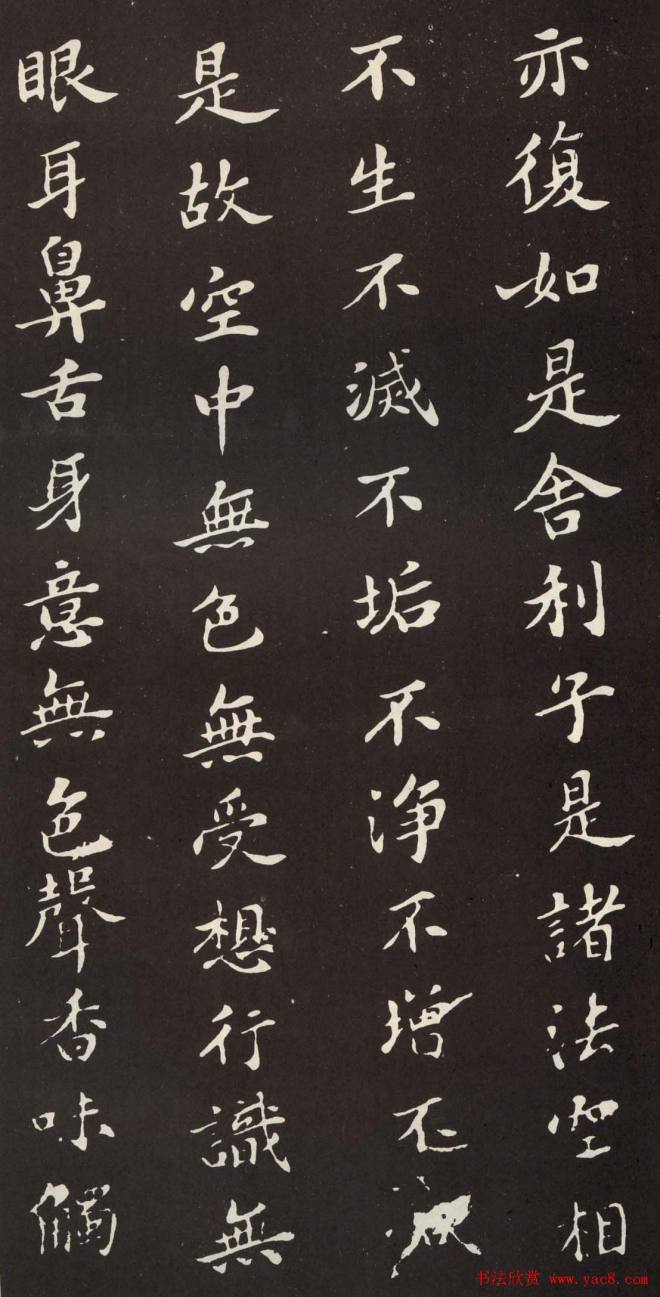 亦復如是舍利子是諸法空相
不生不滅不垢不淨不增不減
是故空中無色無受想行識無
眼耳鼻舌身意無色聲香味觸
书法欣赏 www.yac8.com